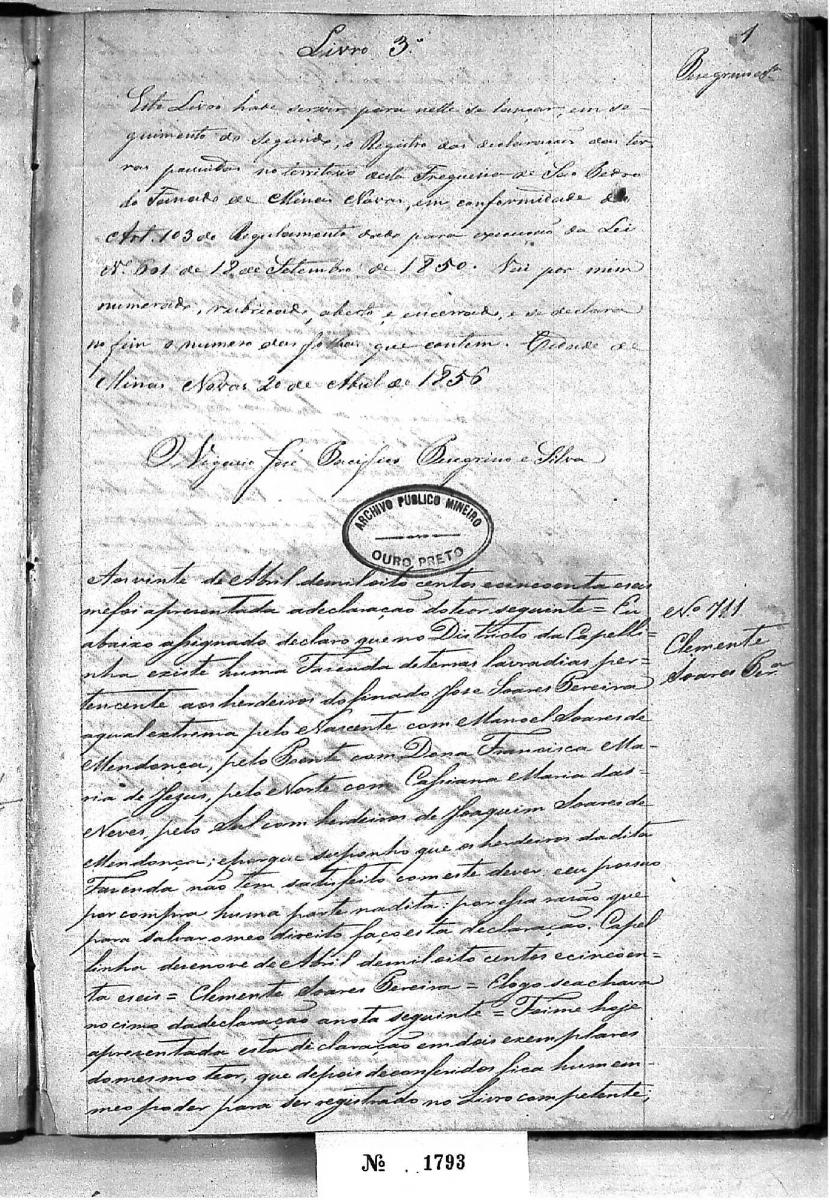 1
Livro 3º
Peregrino e Sª
Este Livro hade servir para nelle se lançar, em se-
guimento do segundo, o Registro das declarações das ter-
ras possuidas no territorio desta Freguesia de São Pedro
do Fanado de Minas Novas, em conformidade do
Art. 103 do Regulamento dado para execução da Lei
Nº 601 de 18 de Setembro de 1850. Vai por mim
numerado, rubricado, aberto, e encerrado, e se declara
no fim o numero das folhas que contem. Cidade de
Minas Novas 20 de Abril de 1856
O Vigario José Pacifico Peregrino e Silva
ARCHIVO PUBLICO MINEIRO
OURO PRETO
Aos vinte de Abril de mil oito centos e cincoenta e seis
me foi apresentada a declaração do teor seguinte = Eu
abaixo assignado declaro que no Districto da Capelli-
nha existe huma Fazenda de terras lavradias per-
tencente aos herdeiros do finado José Soares Pereira
a qual extrema pelo Nascente com Manoel Soares de
Mendonça, pelo Poente com Dona Francisca Ma-
ria de Jezus, pelo Norte com Cassiana Maria das
Neves, pelo Sul com herdeiros de Joaquim Soares de
Mendonça; e porque supponho que os herdeiros da dita
Fazenda não tem satisfeito com este dever, e eu possuo
por compra huma parte na dita: por essa razão que
para salvar o meo direito faço esta declaração. Capel-
linha desenove de Abril de mil oito centos e cincoen-
ta e seis = Clemente Soares Pereira = E logo se achava
no cimo da declaração a nota seguinte = Foi me hoje
apresentada esta declaração em dois exemplares
do mesmo teor, que depois de conferidos fica hum em
meo poder para ser registrado no Livro competente,
Nº 711
Clemente
Soares Perª
Nº 1793